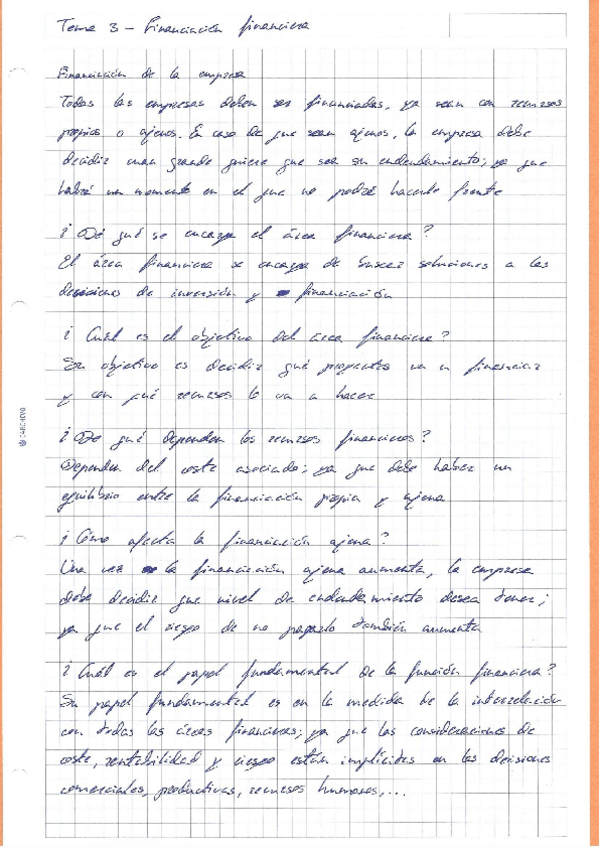 Tema 3 - Financiación financiera
Financiación de la empresa
Todas las empresas deben ser financiadas, ya sean con recursos
propios o ajenos. En caso de que sean ajenos, la empresa debe
decidir cuan grande quiere que sea su endeudamiento; ya que
habrá un momento en el que no podrá hacerle frente
¿De qué se encarga el área financiera?
El área financiera se encarga de buscar soluciones a las
decisiones de inversión y financiación
¿Cuál es el objetivo del área financiera?
Su objetivo es decidir qué proyectos va a financiar
y con qué recursos lo va a hacer
¿De qué dependen los recursos financieros?
Dependen del coste asociado; ya que debe haber un
equilibrio entre la financiación propia y ajena
¿Cómo afecta la financiación ajena?
Una vez la financiación ajena aumenta, la empresa
debe decidir que nivel de endeudamiento desea tener;
ya que el riesgo de no pagarlo también aumenta
¿Cuál es el papel fundamental de la función financiera?
Su papel fundamental es en la medida de la interrelación
con todas las áreas financieras; ya que las consideraciones de
coste, rentabilidad y riesgo están implícitas en las decisiones
comerciales, productivas, recursos humanos,...